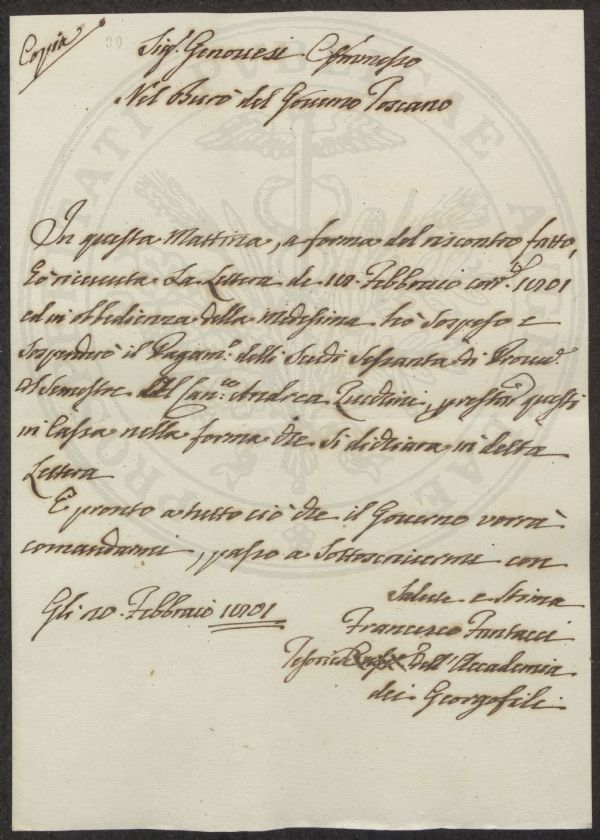 Copia
Sig.r Genovesi Commesso
Nel Burò del Governo Toscano
In questa Mattina, a forma del riscontro fatto,
hò ricevuta La Lettera de 18. Febbraio corr.te 1801
ed in obbedienza della Medesima hò Sospeso e
Sospenderò il Pagam.o delli Scudi Sessanta di Provv.e
al Semestre Al Can.co Andrea, questi
in Cassa nella forma che Si dichiara in detta
Lettera
E pronto a tutto ciò che il Governo vorrà
comandarmi, passo a Sottoscrivermi con
Salute e Stima
Gli 20. Febbraio 1801
Francesco Fantacci
Tesoriere Dell'Accademia
dei Georgofili
PROSPERITATI PUBLICAE AUGENDAE